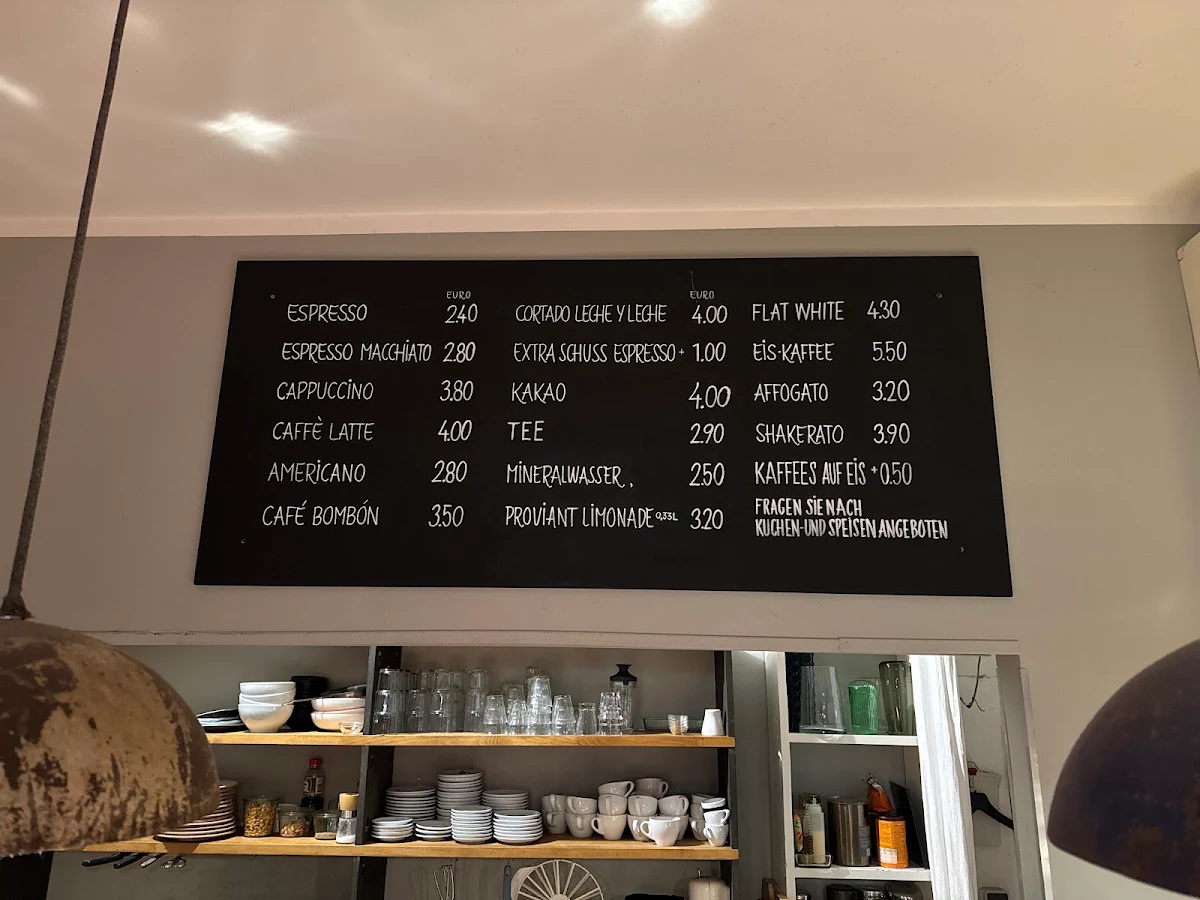 EURO
ESPRESSO 2.40
ESPRESSO MACCHIATO 2.80
CAPPUCCINO 3.80
CAFFÈ LATTE 4.00
AMERICANO 2.80
CAFÉ BOMBÓN 3.50
EURO
CORTADO LECHE Y LECHE 4.00
EXTRA SCHUSS ESPRESSO + 1.00
KAKAO 4.00
TEE 2.90
MINERALWASSER, 2.50
PROVIANT LIMONADE 0,33L 3.20
FLAT WHITE 4.30
EIS-KAFFEE 5.50
AFFOGATO 3.20
SHAKERATO 3.90
KAFFEES AUF EIS +0.50
FRAGEN SIE NACH
KUCHEN-UND SPEISEN ANGEBOTEN